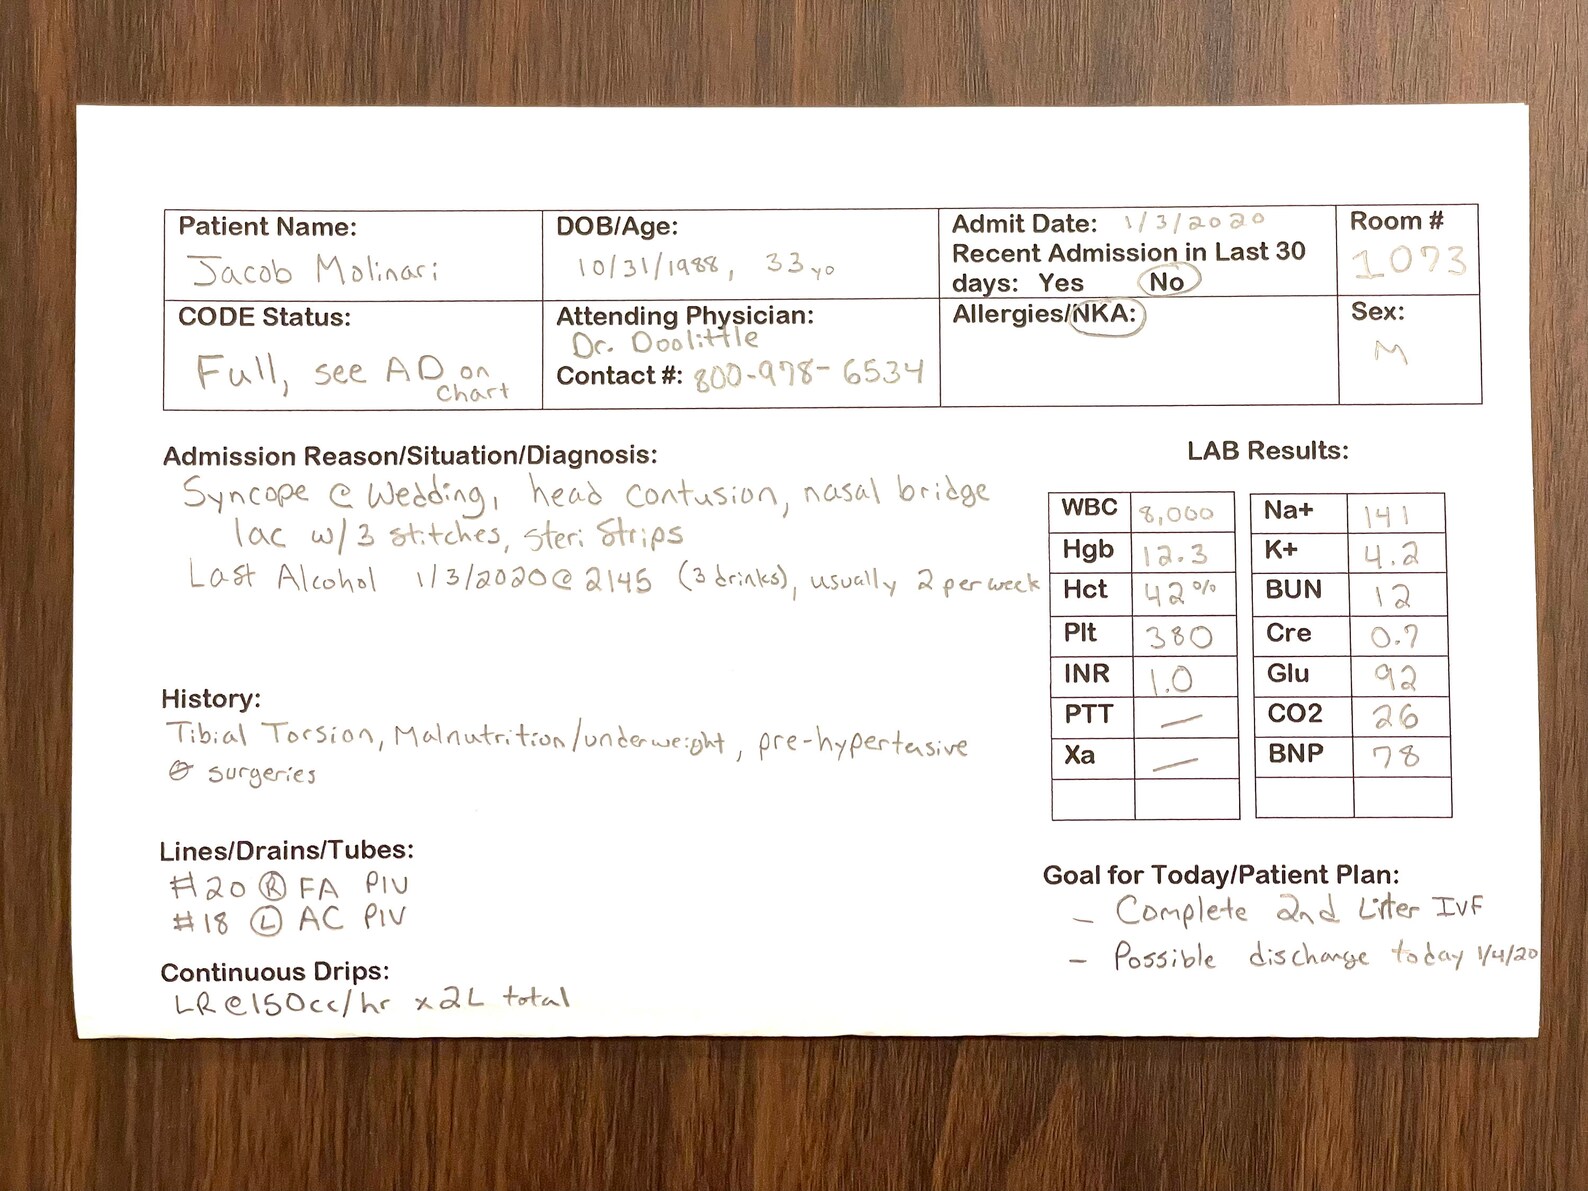 Patient Name:
Jacob Molinari
DOB/Age:
10/31/1988, 33 yo
Admit Date: 1/3/2020
Recent Admission in Last 30
days: Yes No
Room #
1073
CODE Status:
Full, see AD on
Chart
Attending Physician:
Dr. Doolittle
Contact #: 800-978-6534
Allergies/NKA:
Sex:
M
Admission Reason/Situation/Diagnosis:
Syncope @ Wedding, head contusion, nasal bridge
lac w/ 3 stitches, steri strips
Last Alcohol 1/3/2020 @ 2145 (3 drinks), usually 2 per week
History:
Tibial Torsion, Malnutrition/underweight, pre-hypertesive
∅ surgeries
Lines/Drains/Tubes:
#20 Ⓡ FA PIV
#18 Ⓛ AC PIV
Continuous Drips:
LR @ 150cc/hr x 2L total
LAB Results:
WBC 8,000
Hgb 12.3
Hct 42%
Plt 380
INR 1.0
PTT —
Xa —
Na+ 141
K+ 4.2
BUN 12
Cre 0.7
Glu 92
CO2 26
BNP 78
Goal for Today/Patient Plan:
- Complete 2nd Liter IVF
- Possible discharge today 1/4/20